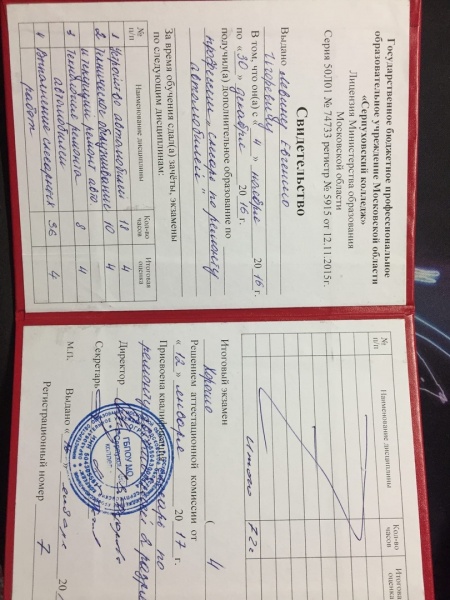 Государственное бюджетное профессиональное
образовательное учреждение Московской области
«Серпуховский колледж»
Лицензия Министерства образования
Московской области
Серия 50Л01 № 74733 регистр № 5915 от 12.11.2015г.
Свидетельство
Выдано Левину Евгению
Игоревичу
В том, что он(а) с « 4 » ноября 20 16 г.
по « 30 » декабря 20 16 г.
получил(а) дополнительное образование по
профессии „ слесарь по ремонту
автомобилей "
За время обучения сдал(а) зачёты, экзамены
по следующим дисциплинам:
№ п/п Наименование дисциплины Кол-во часов Итоговая оценка
1 Устройство автомобиля 18 4
2 Техническое обслуживание 10 4
и текущий ремонт авто.
3 Технология ремонта 8 4
автомобиля
4 Выполнение слесарных 36 4
работ
№ п/п Наименование дисциплины Кол-во часов Итоговая оценка
итого 72ч
Итоговый экзамен
хорошо ( 4
Решением аттестационной комиссии от
« 12 » января 20 17 г.
Присвоена квалификация слесарь по
ремонту автомобилей
Директор
Секретарь
М.П. Выдано « » января 20
Регистрационный номер 7
ГБПОУ МО